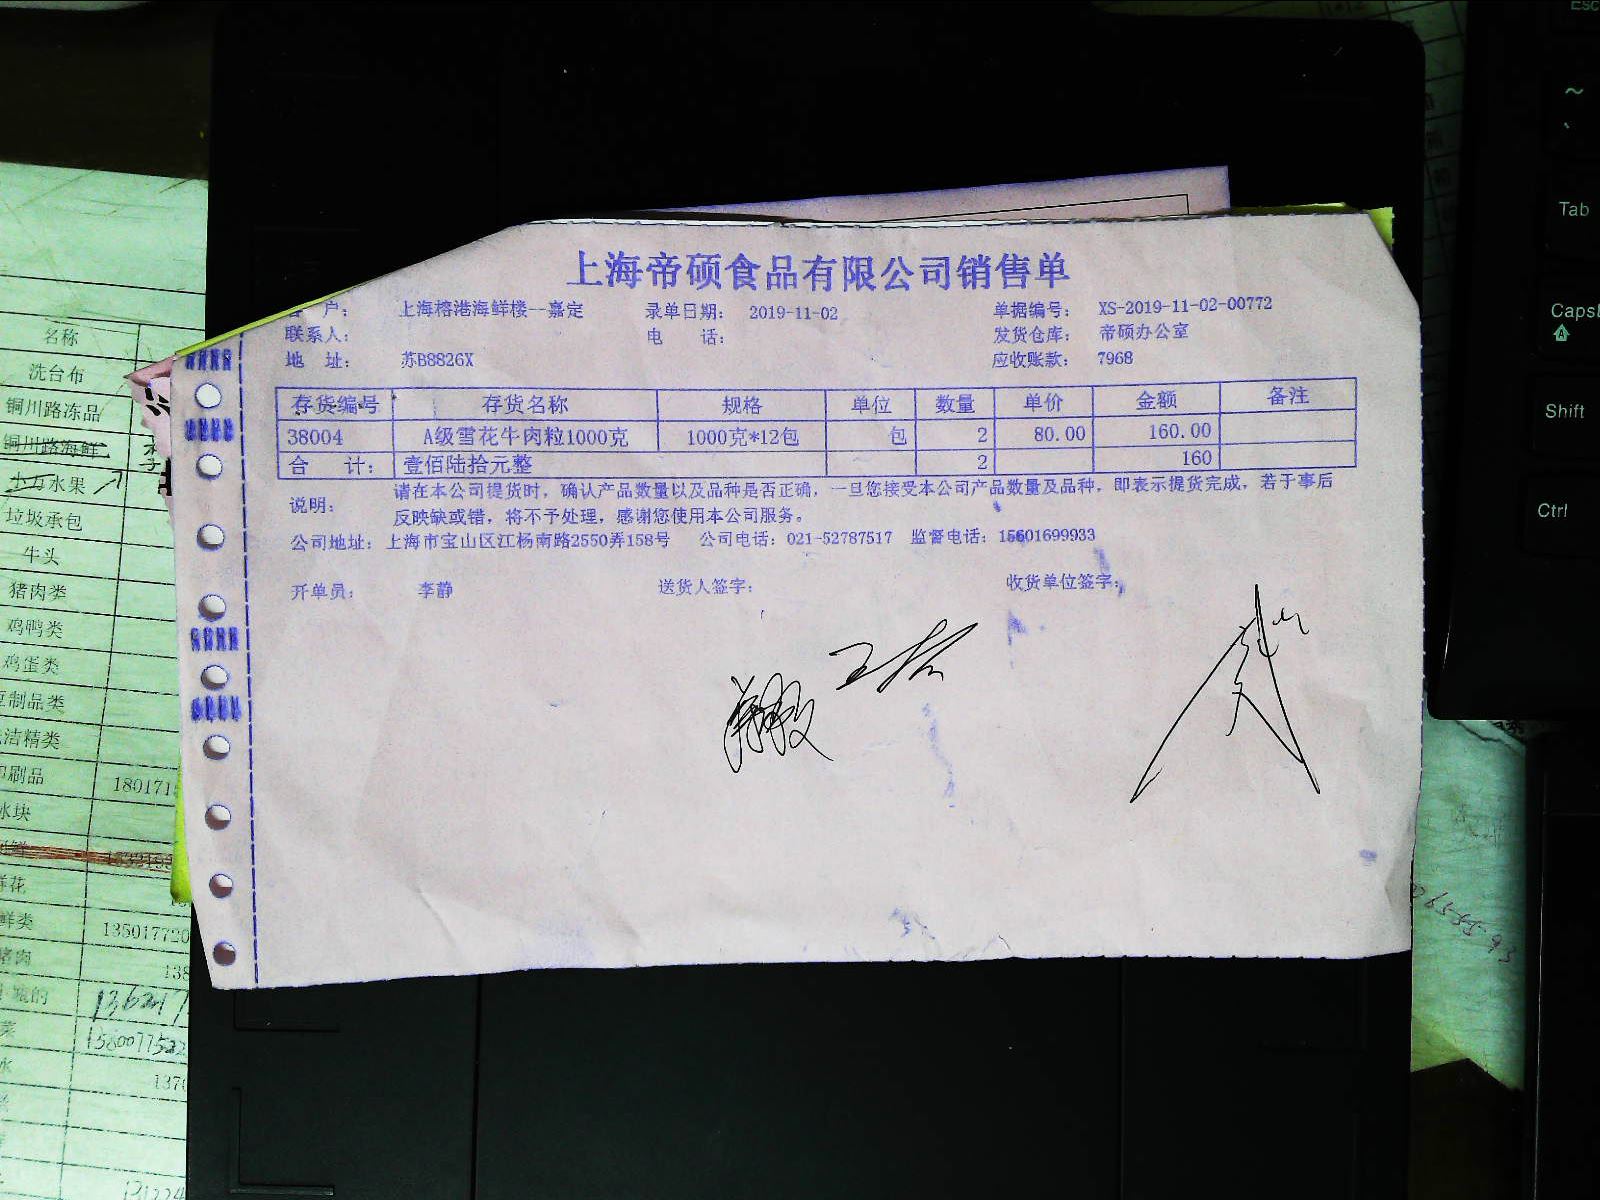 上海帝硕食品有限公司销售单
户： 上海榕港海鲜楼--嘉定 录单日期： 2019-11-02 单据编号： XS-2019-11-02-00772
联系人： 电 话： 发货仓库： 帝硕办公室
地 址： 苏B8826X 应收账款： 7968
存货编号 存货名称 规格 单位 数量 单价 金额 备注
38004 A级雪花牛肉粒1000克 1000克*12包 包 2 80.00 160.00
合 计： 壹佰陆拾元整 2 160
说明： 请在本公司提货时，确认产品数量以及品种是否正确，一旦您接受本公司产品数量及品种，即表示提货完成，若于事后
反映缺或错，将不予处理，感谢您使用本公司服务。
公司地址： 上海市宝山区江杨南路2550弄158号 公司电话：021-52787517 监督电话：15601699933
开单员： 李静 送货人签字： 收货单位签字：
名称
洗台布
铜川路冻品
铜川路海鲜
水果
垃圾承包
牛头
猪肉类
鸡鸭类
鸡蛋类
制品类
洁精类
刷品
冰块
花
鲜类
猪肉
菜
水
Esc
~
Tab
Caps
Shift
Ctrl